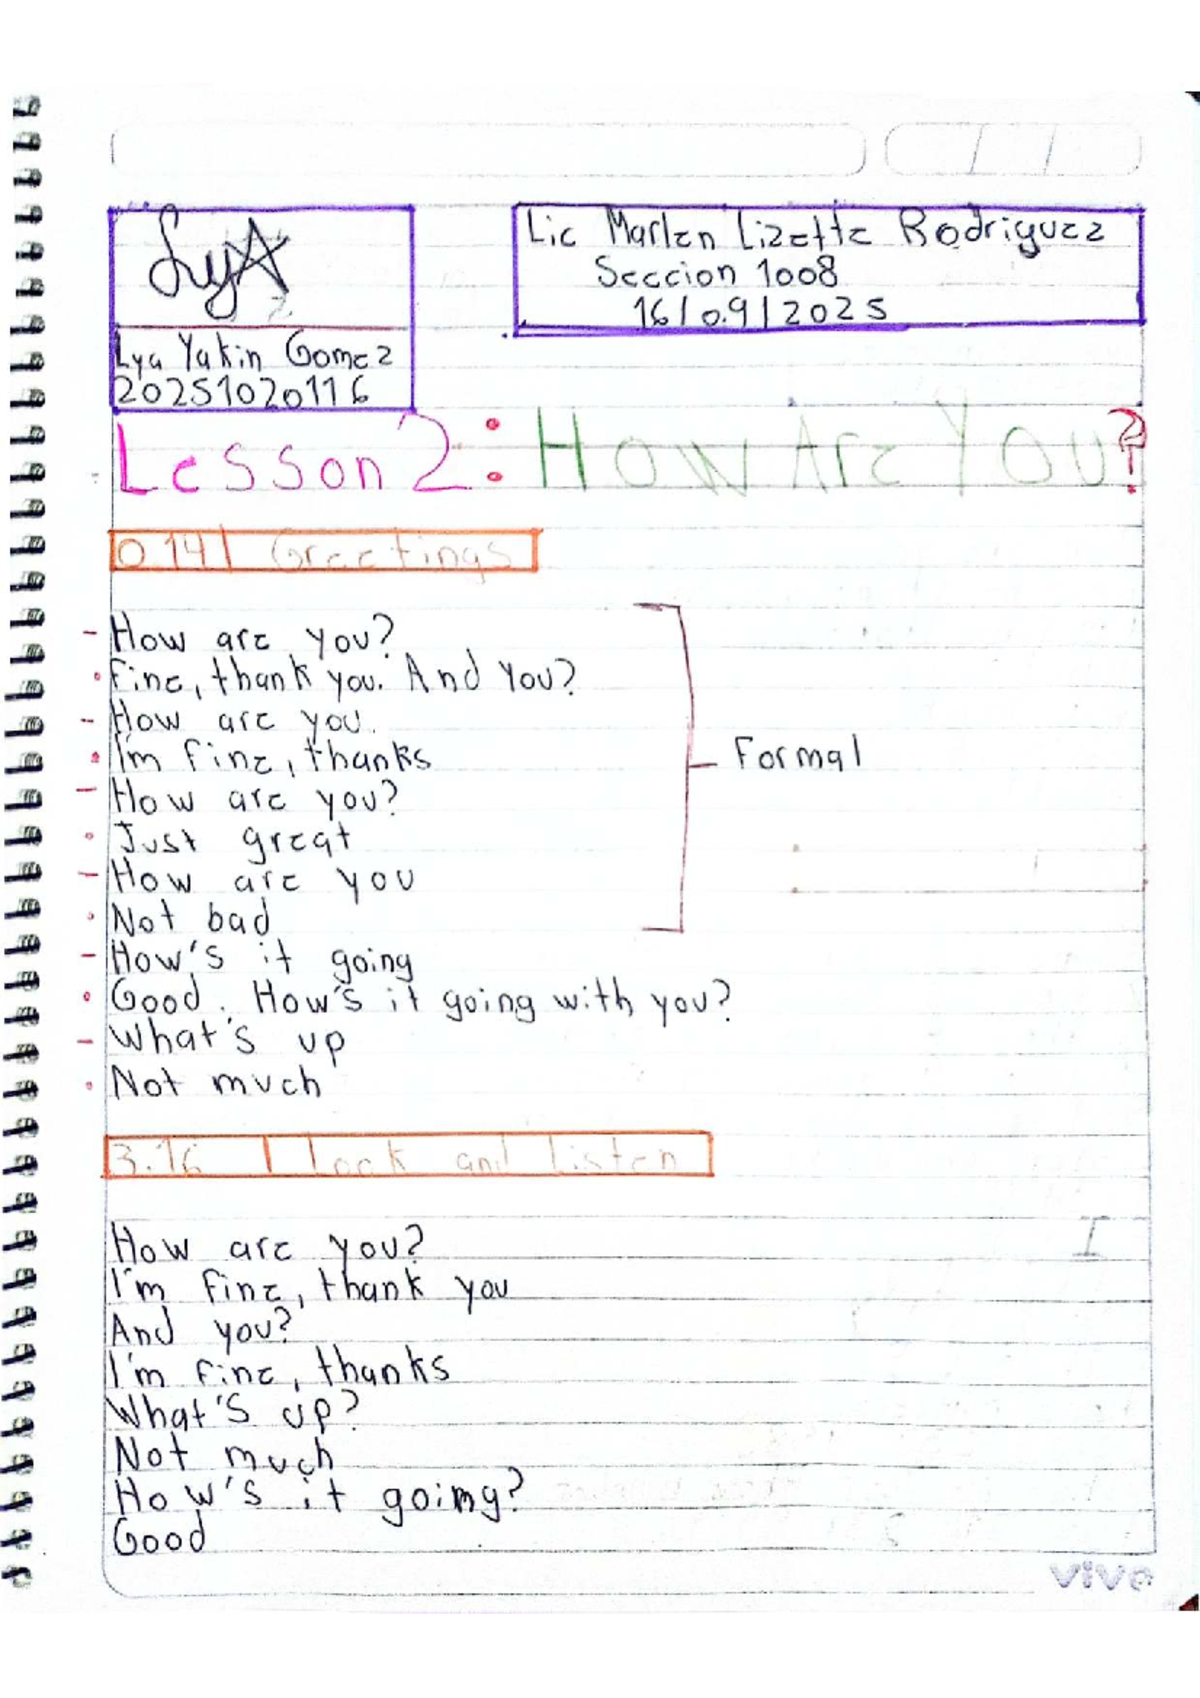 LyA
Lya Yakin Gomez
20251020116
Lic Marlen Lizette Rodriguez
Seccion 1008
16/09/2025
Lesson 2: How Are You?
0.14 | Greetings
- How are you?
• Fine, thank you. And You?
- How are you.
• I'm fine, thanks
- How are you?
• Just great
- How are you
• Not bad
Formal
- How's it going
• Good. How's it going with you?
- What's up
• Not much
3.16 | look and listen
How are you?
I'm fine, thank you
And you?
I'm fine, thanks
What's up?
Not much
How's it going?
Good
vivo